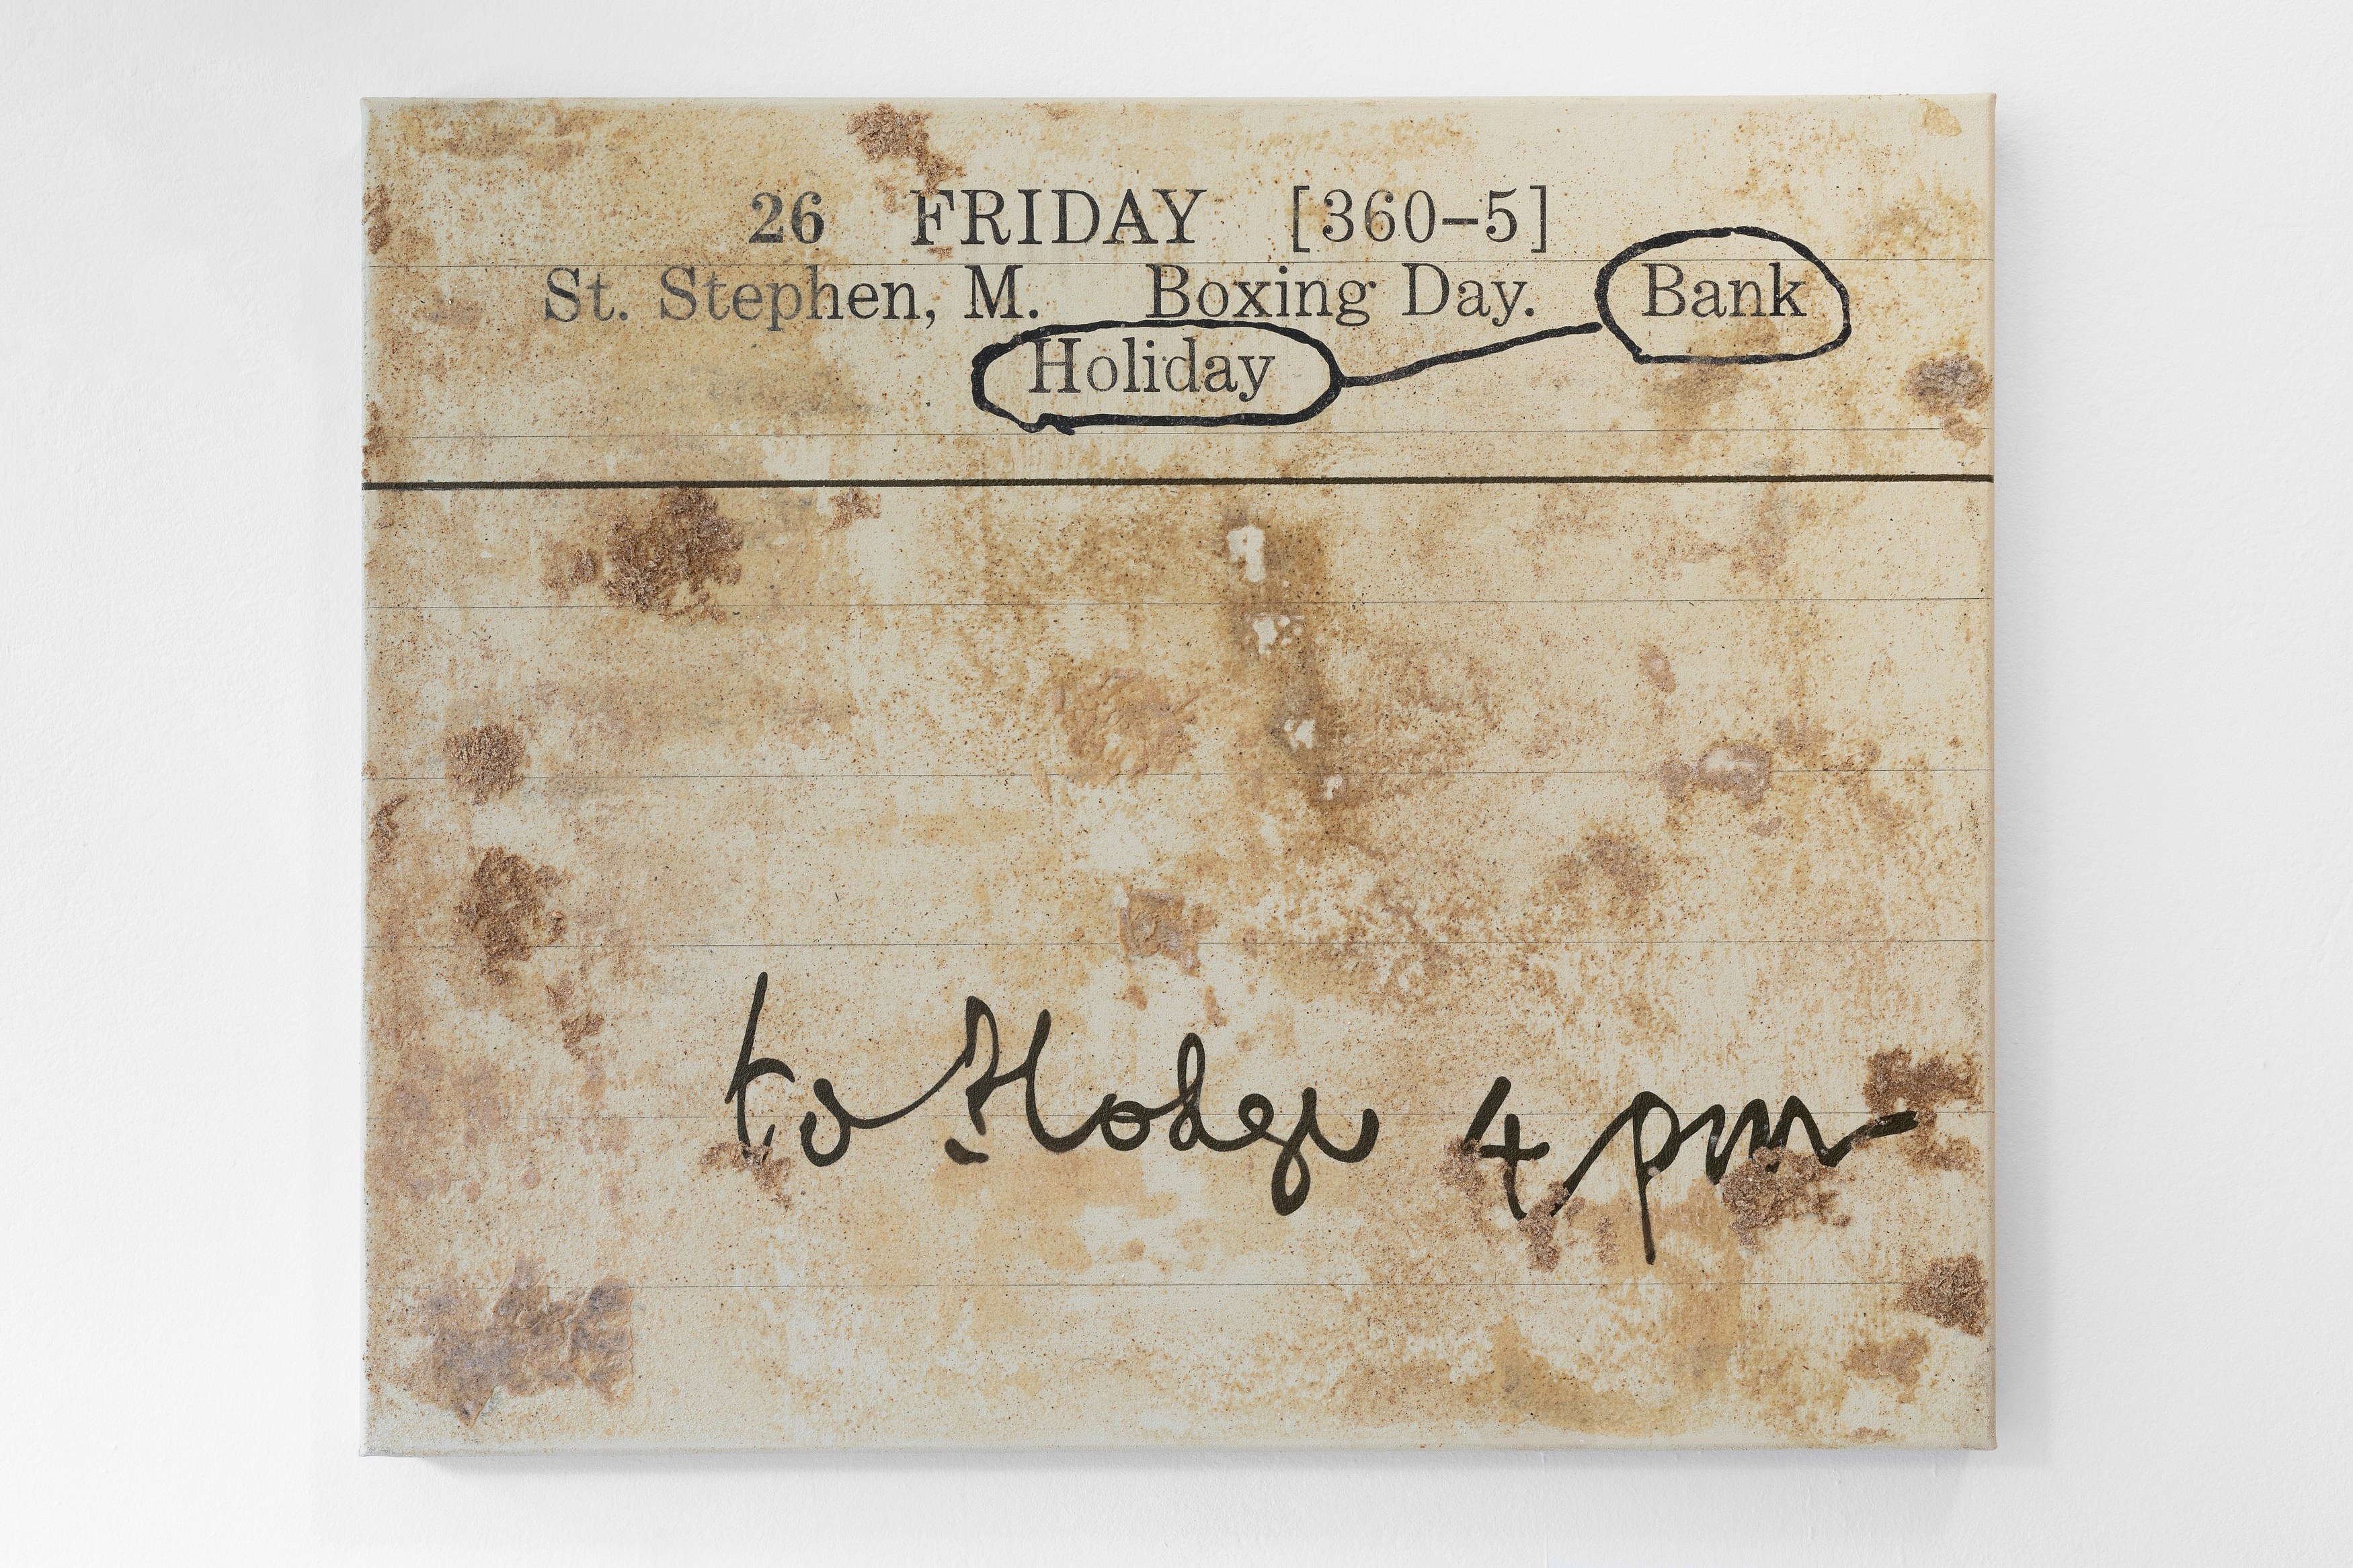 26 FRIDAY [360–5]
St. Stephen, M. Boxing Day. Bank
Holiday
to Hodge 4 pm